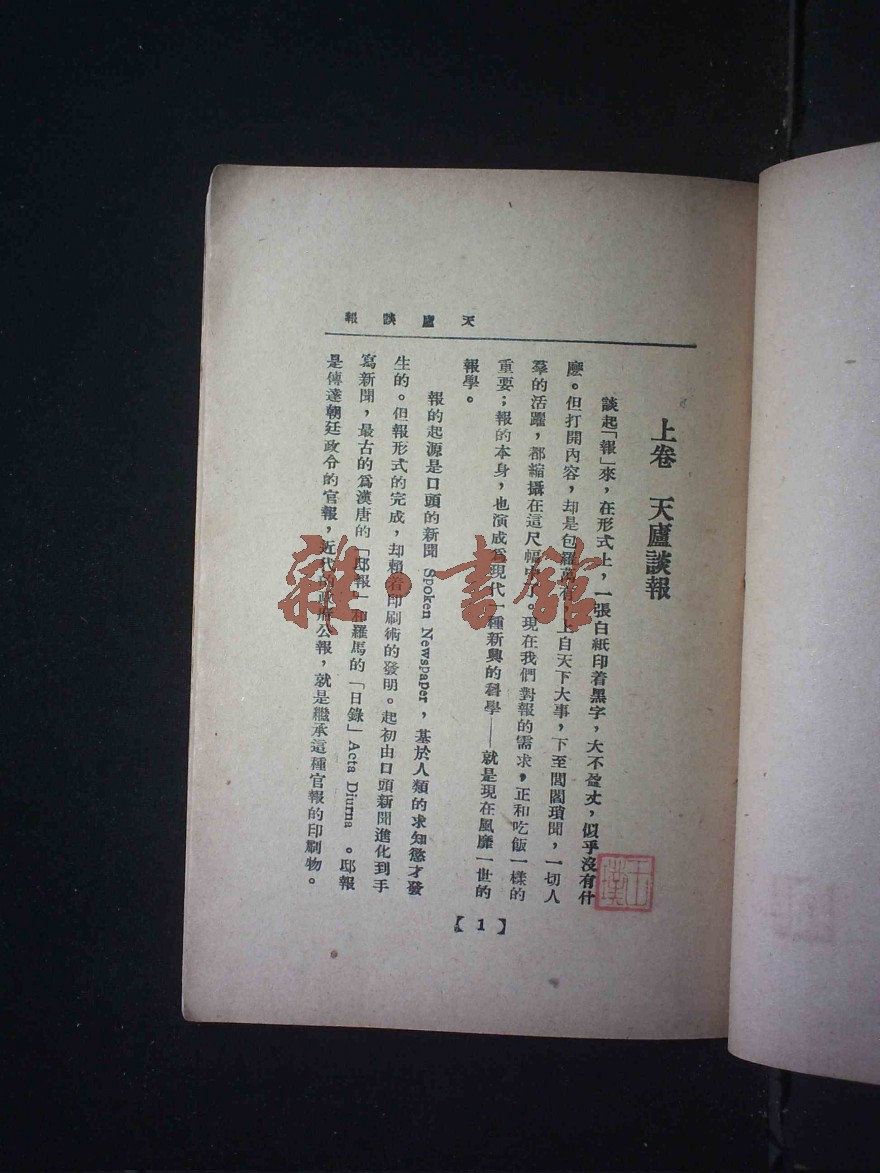 天廬談報
上卷　天廬談報
談起「報」來，在形式上，一張白紙印着黑字，大不盈丈，似乎沒有什
麽。但打開內容，却是包羅萬有，上自天下大事，下至閭閻瑣聞，一切人
羣的活躍，都縮攝在這尺幅中了。現在我們對報的需求，正和吃飯一樣的
重要；報的本身，也演成爲現代一種新興的科學——就是現在風靡一世的
報學。
報的起源是口頭的新聞 Spoken Newspaper，基於人類的求知慾才發
生的。但報形式的完成，却賴着印刷術的發明。起初由口頭新聞進化到手
寫新聞，最古的爲漢唐的「邸報」和羅馬的「日錄」Acta Diurna 。邸報
是傳達朝廷政令的官報，近代的政府公報，就是繼承這種官報的印刷物。
【1】
雜·書館
王璞